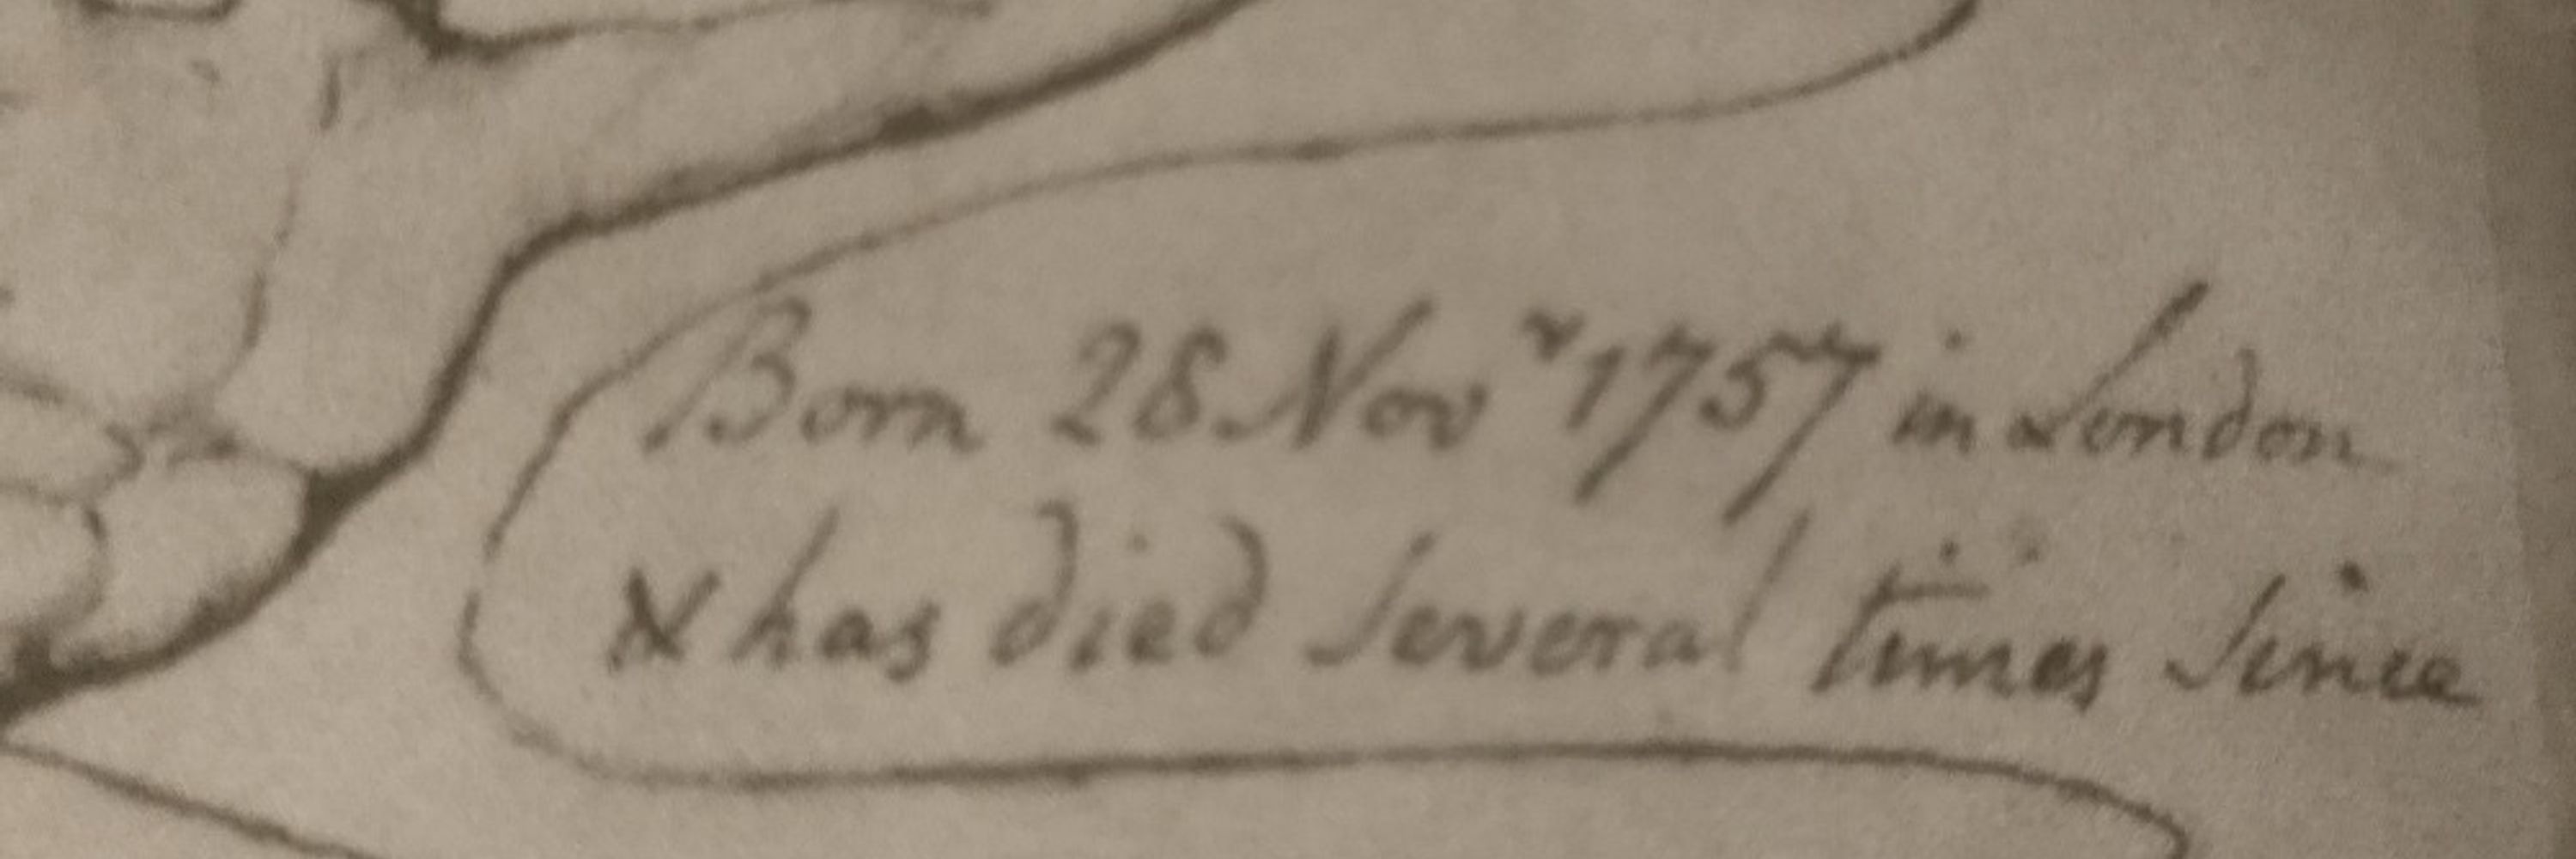 Born 28 Novr 1757 in London
& has died several times since